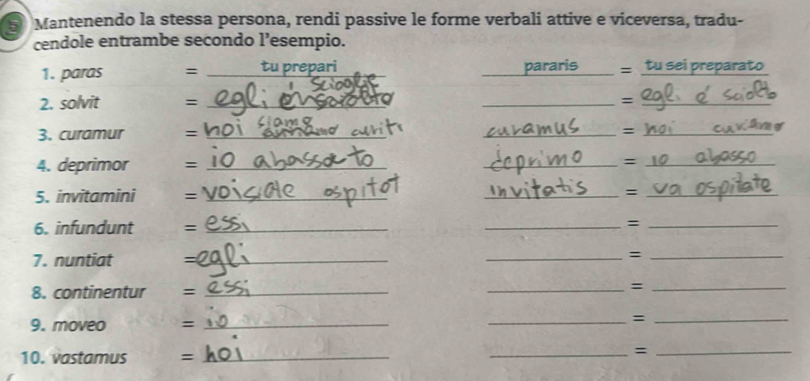 5 Mantenendo la stessa persona, rendi passive le forme verbali attive e viceversa, tradu-
cendole entrambe secondo l'esempio.
1. paras = tu prepari pararis = tu sei preparato
2. solvit = egli scioglie = egli é sciolto
3. curamur = noi siamo curati curamus = noi curiamo
4. deprimor = io abassato deprimo = io abasso
5. invitamini = voi siate ospitat invitatis = va ospitate
6. infundunt = essi =
7. nuntiat = egli =
8. continentur = essi =
9. moveo = io =
10. vastamus = noi =